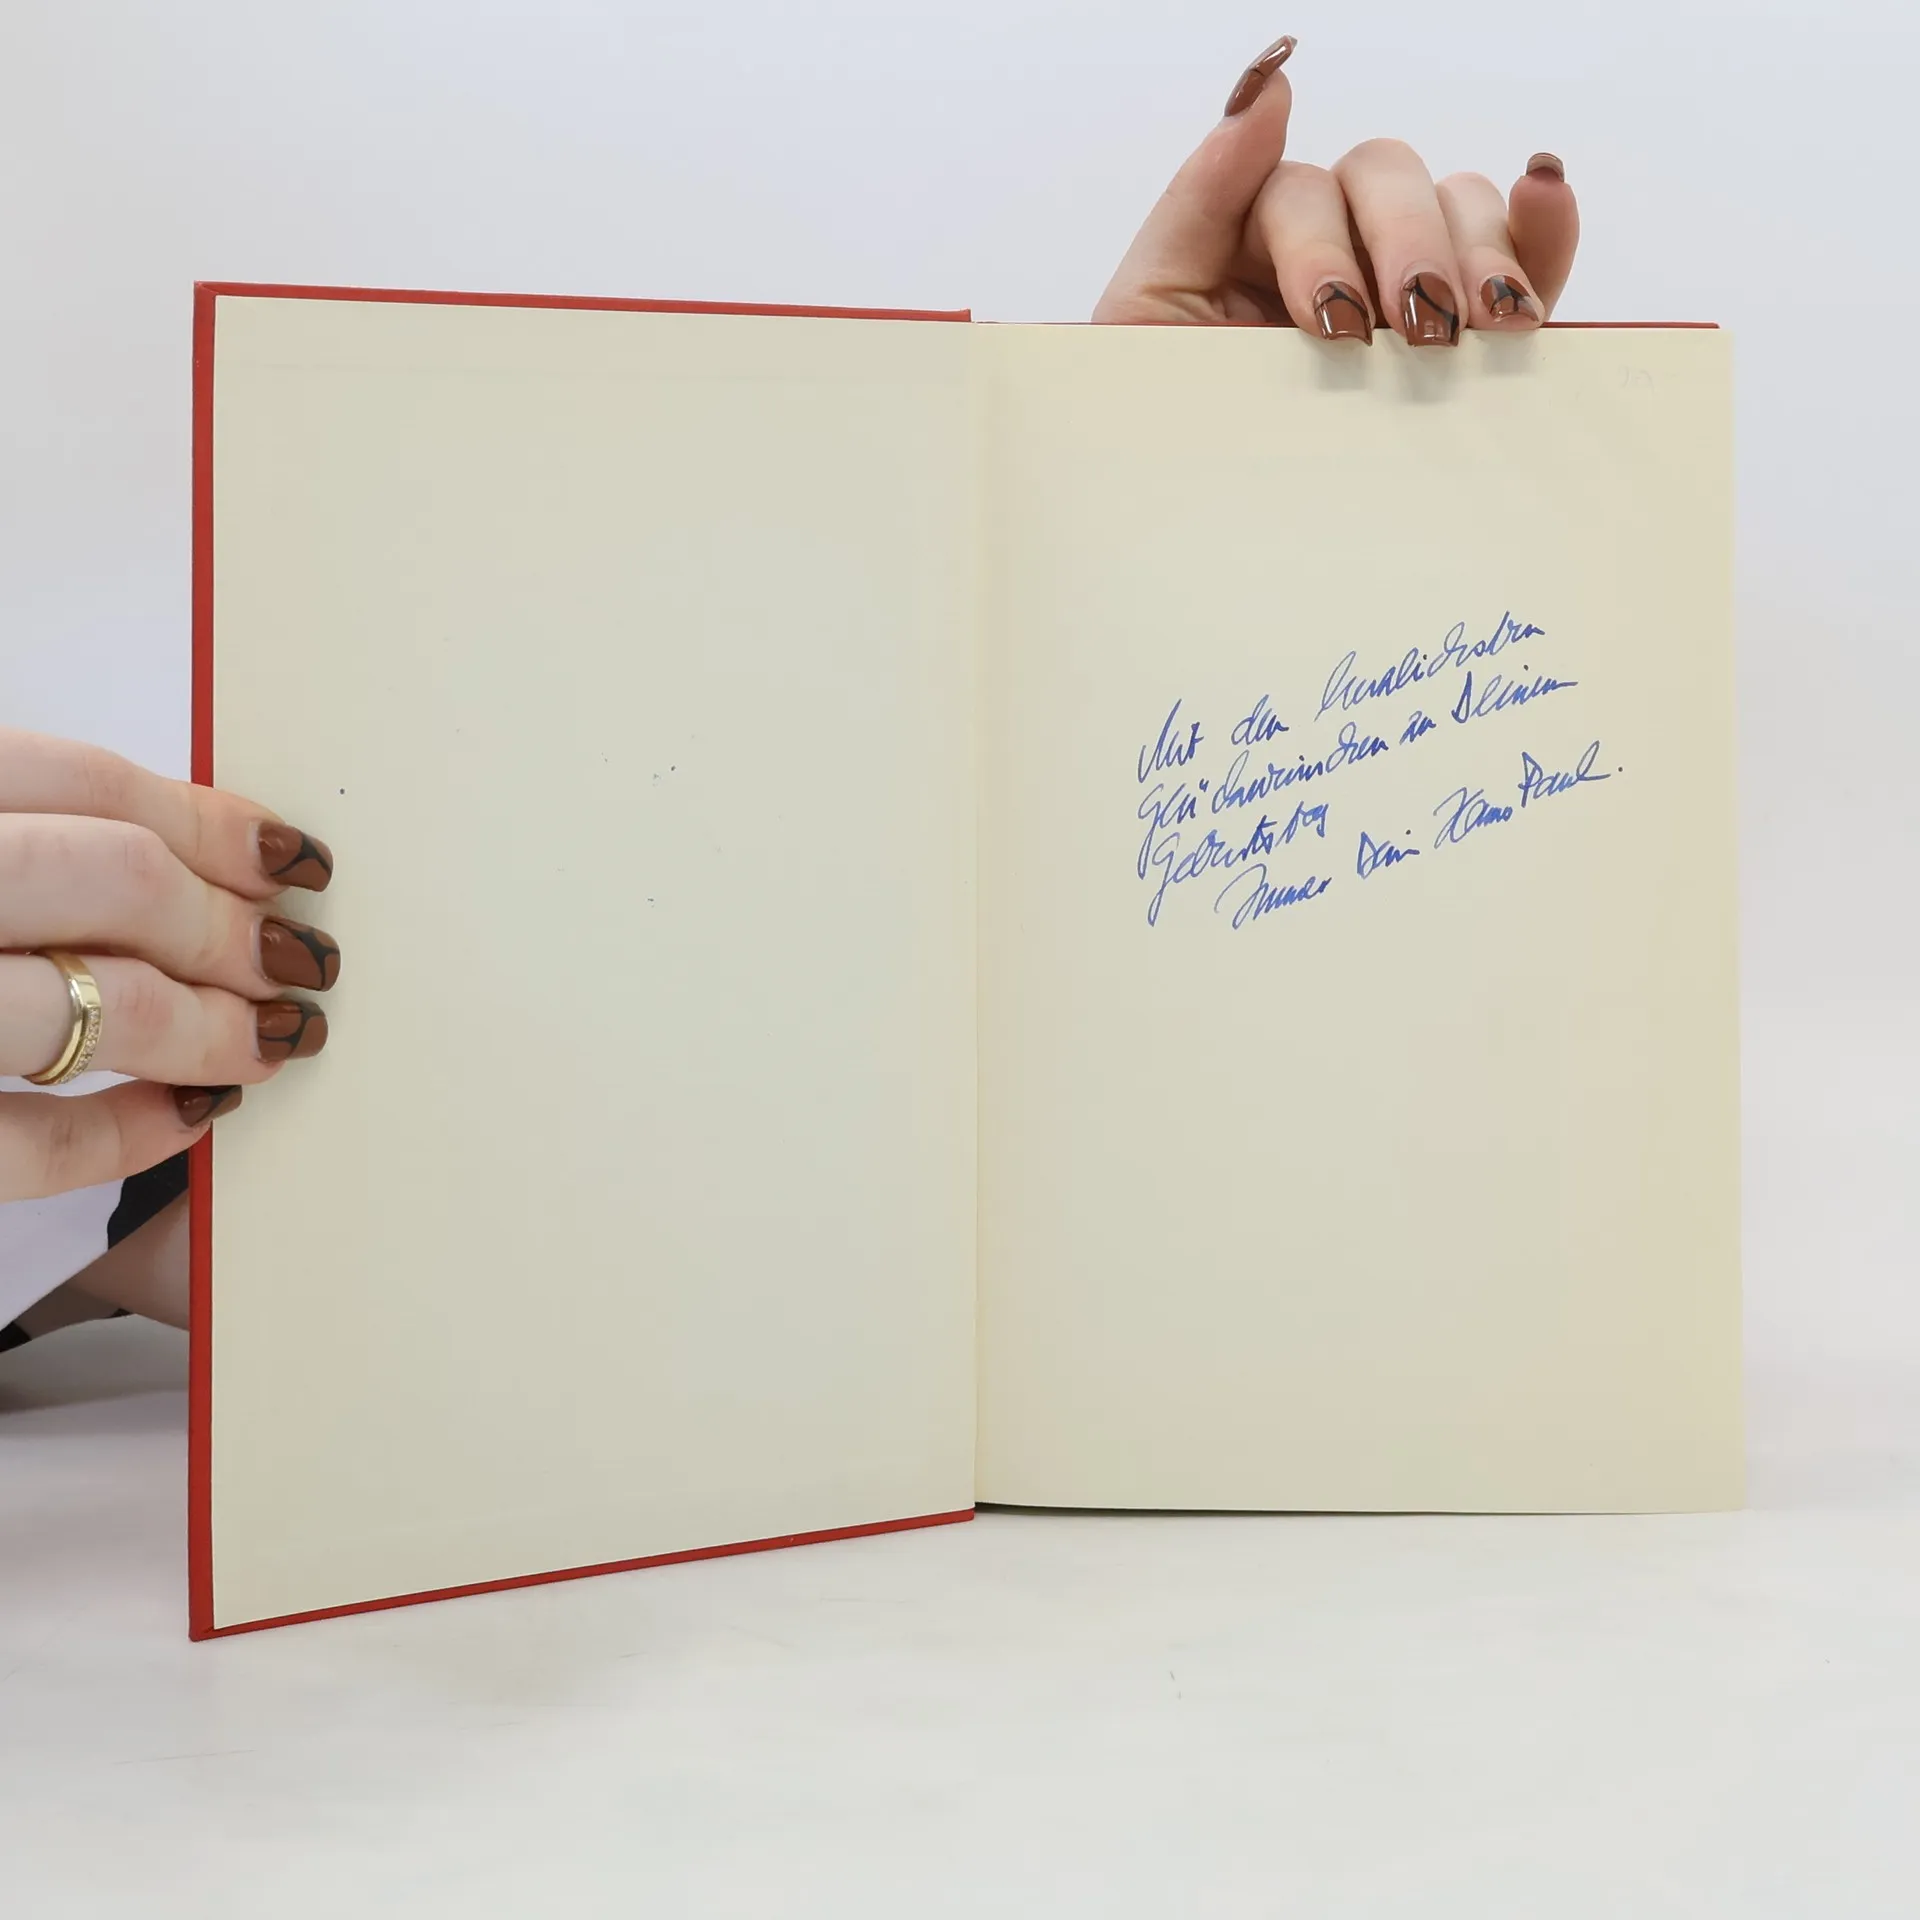 Mit den herzlichsten
Glückwünschen zu Deinem
Geburtstag
Immer Dein Hans Paul.